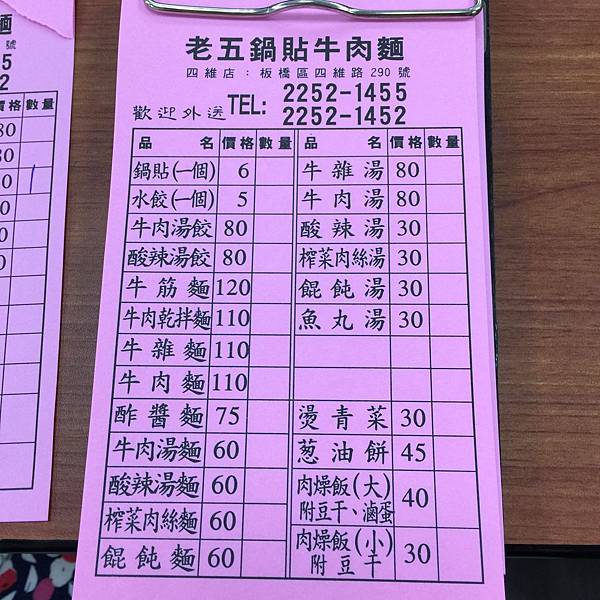 老五鍋貼牛肉麵
四維店：板橋區四維路290號
歡迎外送 TEL: 2252-1455
2252-1452
品名 價格 數量 品名 價格 數量
鍋貼(一個) 6 牛雜湯 80
水餃(一個) 5 牛肉湯 80
牛肉湯餃 80 酸辣湯 30
酸辣湯餃 80 榨菜肉絲湯 30
牛筋麵 120 餛飩湯 30
牛肉乾拌麵 110 魚丸湯 30
牛雜麵 110
牛肉麵 110
酢醬麵 75 燙青菜 30
牛肉湯麵 60 葱油餅 45
酸辣湯麵 60 肉燥飯(大) 附豆干、滷蛋 40
榨菜肉絲麵 60 肉燥飯(小) 附豆干 30
餛飩麵 60
麵
號
5
2
價格 數量
80